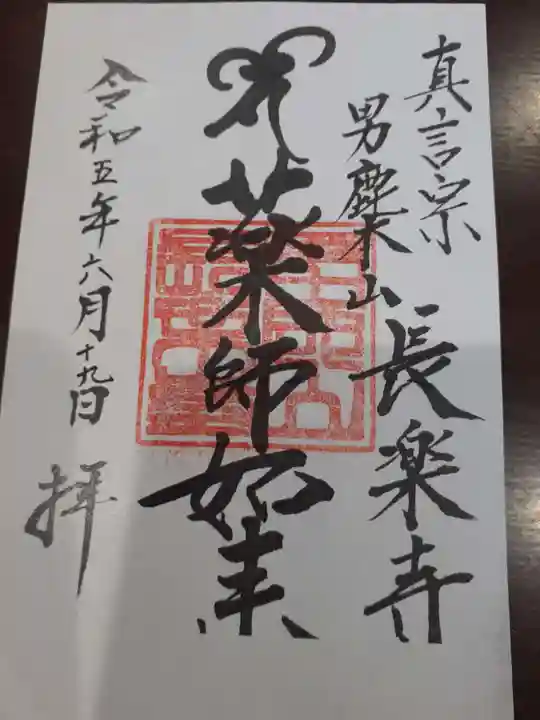 真言宗
男鹿山
長楽寺
薬師如来
令和五年六月十九日
拝